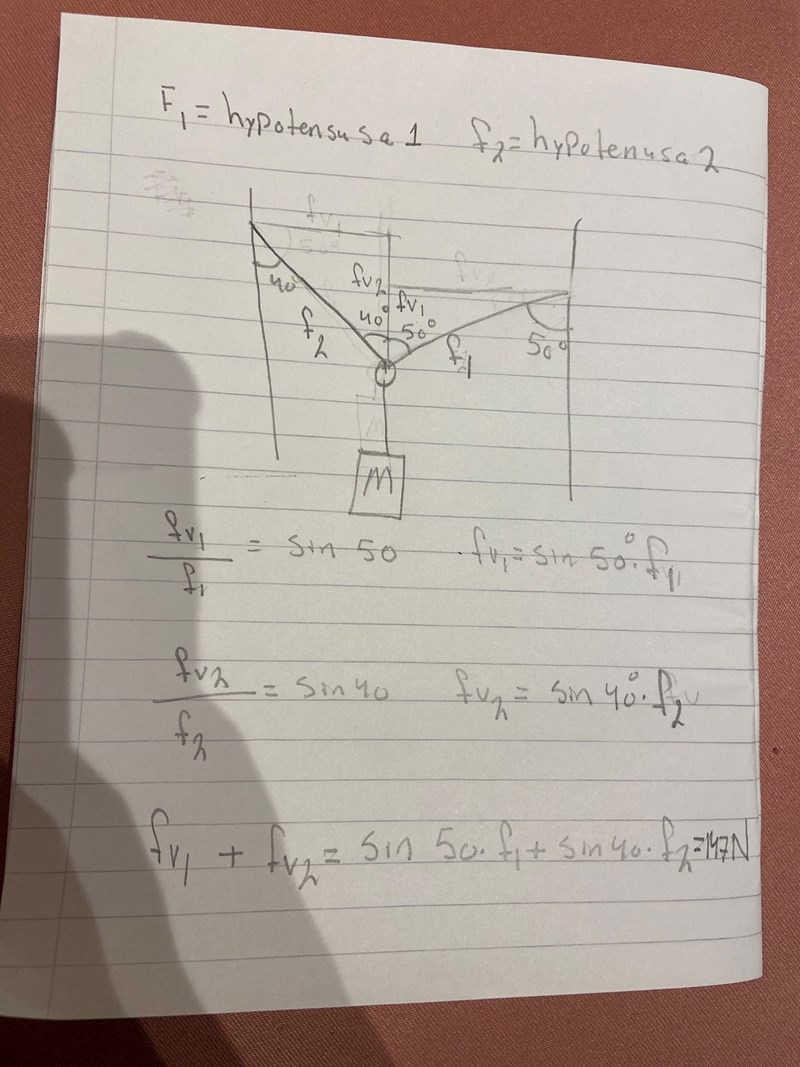 F₁ = hypotensusa 1 f₂ = hypotenusa 2
fv₁
50°
40°
fv₂
fv₁
40°
50°
f₂
f₁
50°
M
fv₁/f₁ = sin 50 fv₁ = sin 50° · f₁
fv₂/f₂ = sin 40 fv₂ = sin 40° · f₂
fv₁ + fv₂ = sin 50 · f₁ + sin 40 · f₂ = 147N